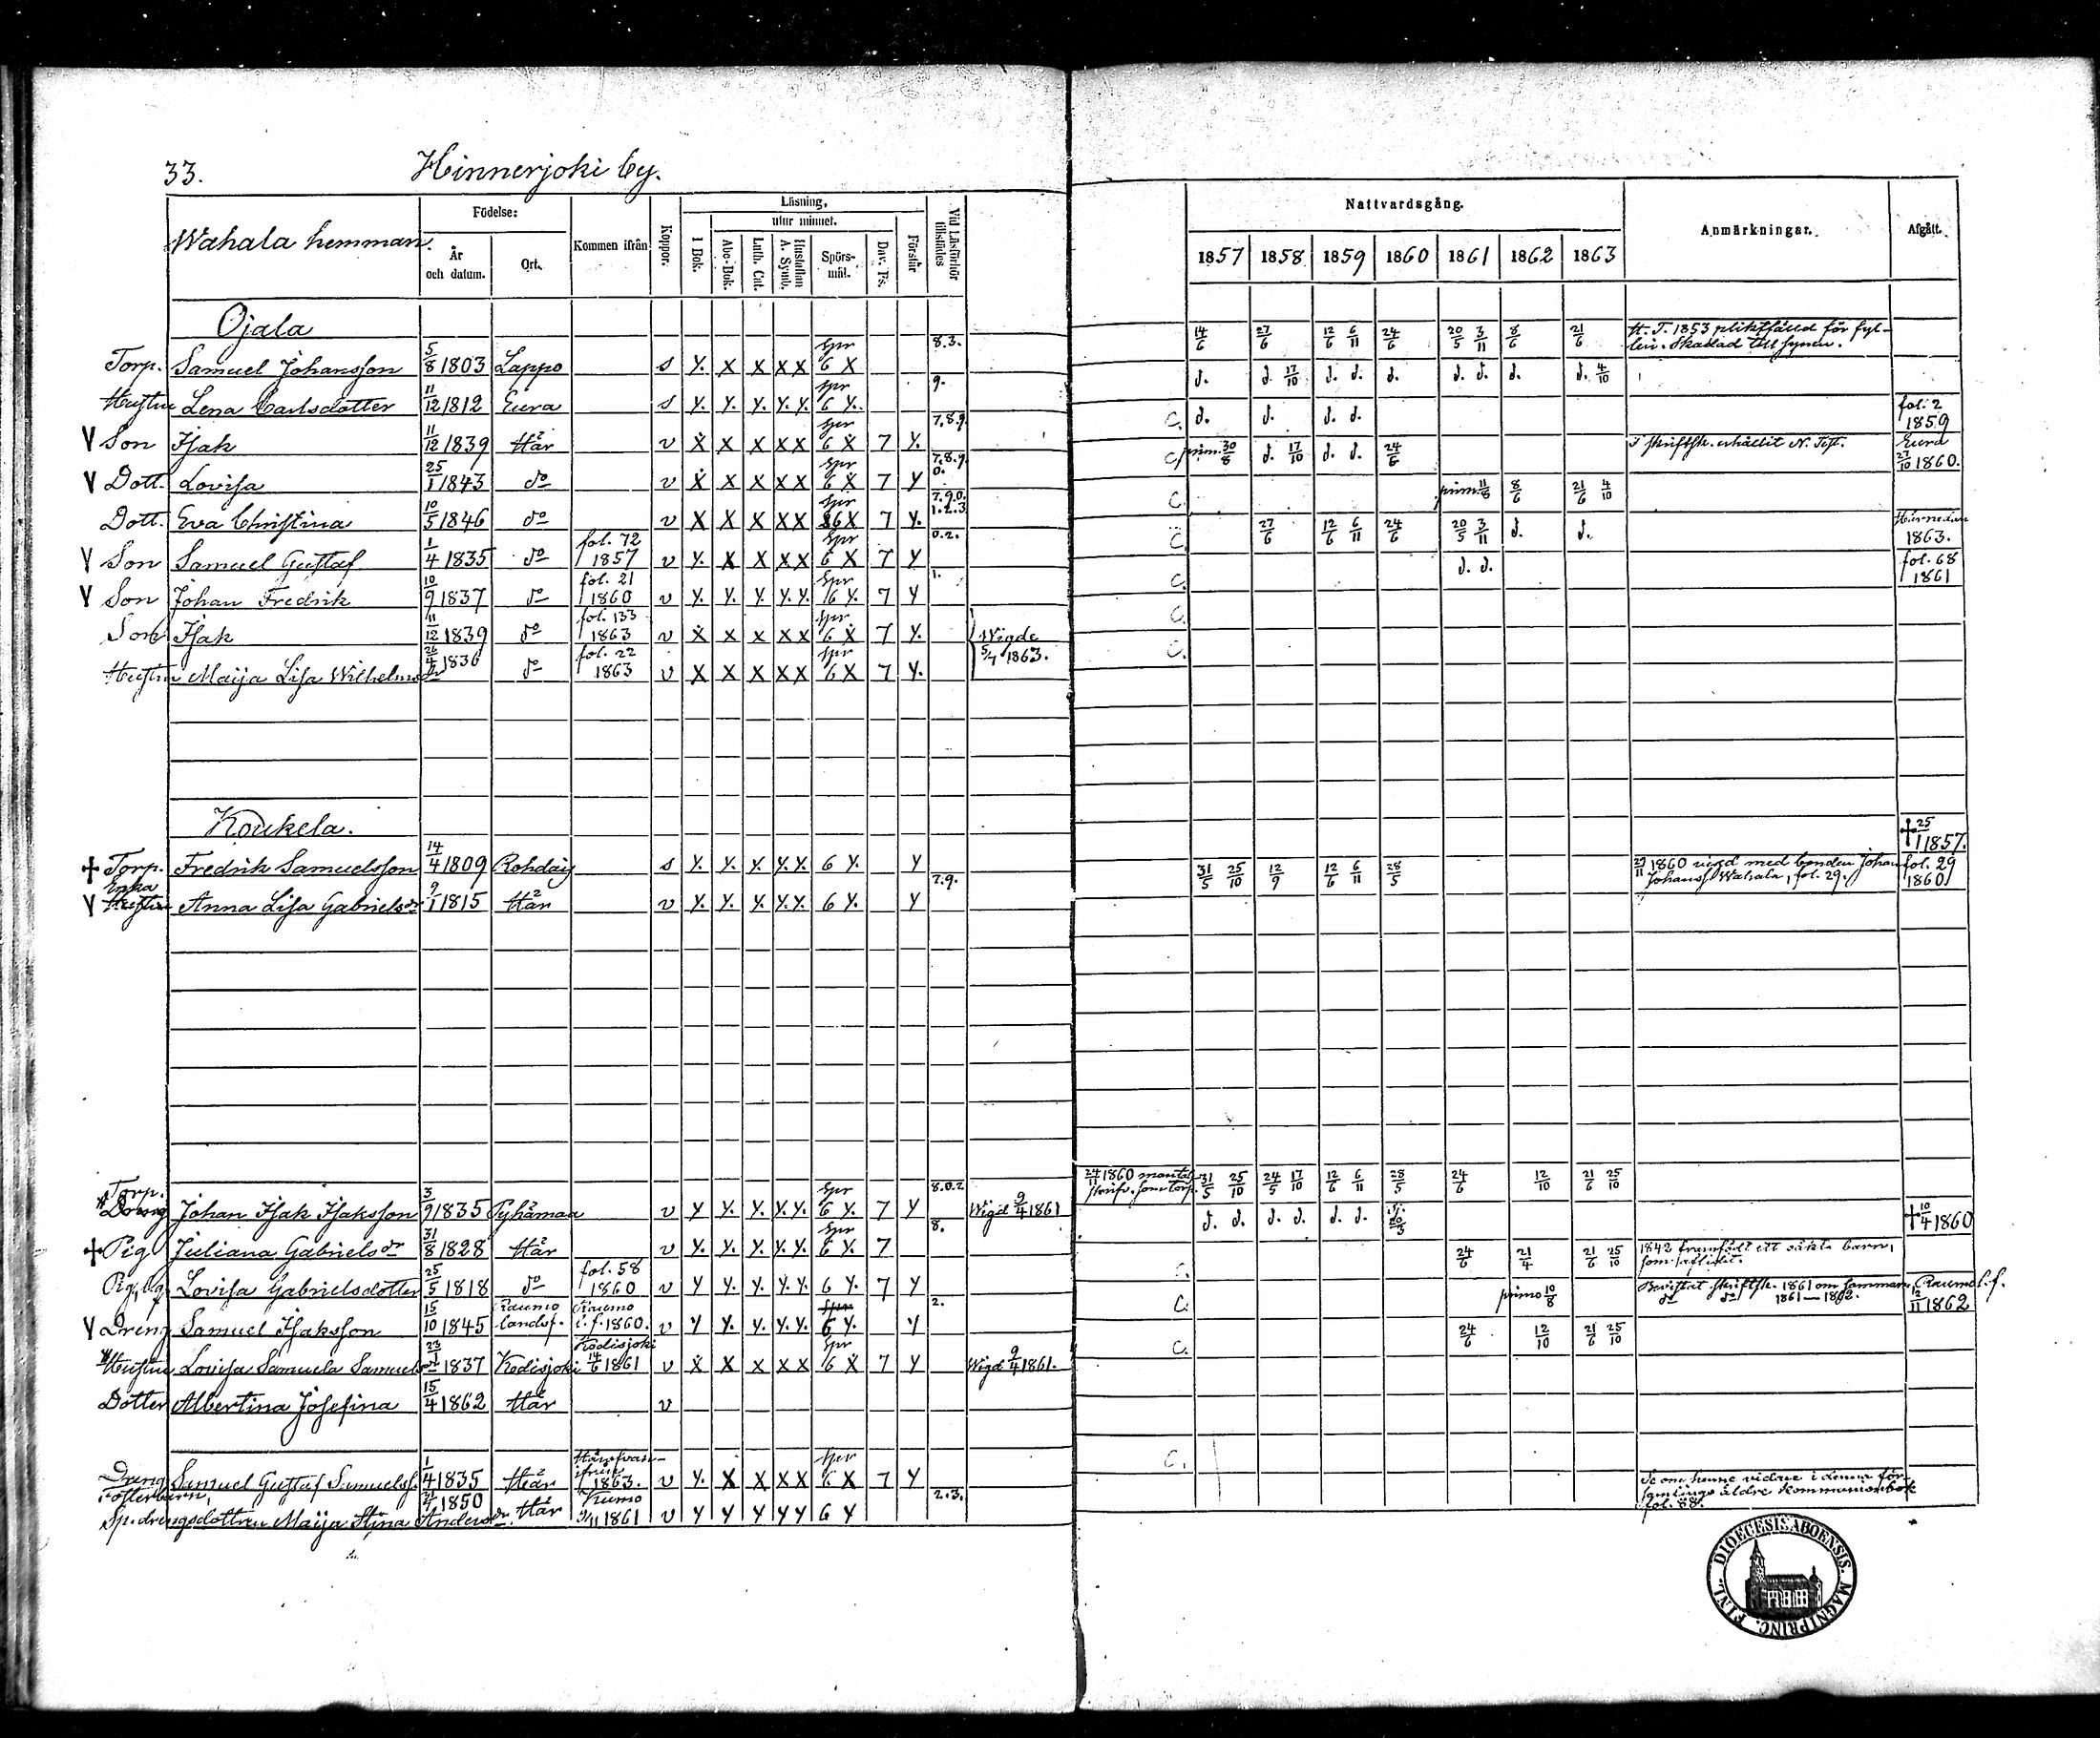 33. Hinnerjoki by.
Wahala hemman.
Födelse: År och datum. Ort. Kommen ifrån Koppor. Läsning, I Bok. utur minnet. Abc-Bok. Luth. Cat. Hustaflan A. Symb. Spörs-mål. Dav. Ps. Förstår Vid Läsförhör tillstädes
Nattvardsgång. 1857 1858 1859 1860 1861 1862 1863 Anmärkningar. Afgått.
Ojala
Torp. Samuel Johansson 5/8 1803 Lappo s Y. X X X X Spr 6 X 8.3. 14/6 27/6 12/6 6/11 24/6 20/5 3/11 8/6 21/6 H. T. 1853 pliktfälld för fyl-
leri. Skadad till synen.
Hustru Lena Carlsdotter 11/12 1812 Eura s Y. Y. Y. Y. Y. Spr 6 Y. 9. d. d. 17/10 d. d. d. d. d. d. d. 4/10
V Son Isak 11/12 1839 Här v X X X X X Spr 6 X 7 Y. 7.8.9. C. d. d. d. d. fol. 2 1859
V Dott. Lovisa 25/1 1843 do v X X X X X Spr 6 X 7 Y 7.8.9. 0. C. prim. 30/8 d. 17/10 d. d. 24/6 I skriftsk. erhållit N. Test. Eura 27/10 1860.
Dott. Eva Christina 10/5 1846 do v X X X X X Spr 6 X 7 Y. 7.9.0. 1.2.3 C. prim. 11/8 8/6 21/6 4/10
V Son Samuel Gustaf 1/4 1835 do fol. 72 1857 v Y. X X X X Spr 6 X 7 Y 0.2. C. 27/6 12/6 6/11 24/6 20/5 3/11 d. d. Härnedan 1863.
V Son Johan Fredrik 10/9 1837 do fol. 21 1860 v Y. Y. Y. Y. Y. Spr 6 Y. 7 Y 1. C. d. d. fol. 68 1861
Son Isak 11/12 1839 do fol. 133 1863 v X X X X X Spr. 6 X 7 Y. Wigde C.
Hustru Maija Lisa Wilhelmsdr 26/4 1836 do fol. 22 1863 v X X X X X Spr 6 X 7 Y. 5/7 1863. C.
Koukela.
† Torp. Fredrik Samuelsson 14/4 1809 Rohdais s Y. Y. Y. Y. Y. 6 Y. Y † 25/1 1857.
V Enka Hustru Anna Lisa Gabrielsdr 9/1 1815 Här v Y. Y. Y. Y. Y. 6 Y. Y 7.9. 31/5 25/10 12/9 12/6 6/11 28/5 27/11 1860 vigd med bonden Johan
Johanss. Wahala, fol. 29. fol. 29 1860
Torp. Dreng Johan Isak Isaksson 3/9 1835 Pyhämaa v Y Y. Y. Y. Y. Spr 6 Y. 7 Y 8.0.2 Wigd 9/4 1861 24/11 1860 mantals
skrifv. som torp. 31/5 25/10 24/5 17/10 12/6 6/11 28/5 24/6 12/10 21/6 25/10
† Pig Juliana Gabrielsdr 31/8 1828 Här v Y. Y. Y. Y. Y. Spr 6 Y. 7 8. d. d. d. d. d. d. † 10/4 1860
Lovisa Gabrielsdotter 25/5 1818 do fol. 58 1860 v Y Y. Y. Y. Y. 6 Y. 7 Y C. 24/6 21/4 21/6 25/10 1842 framfödt ett oäkta barn,
V Dreng Samuel Isaksson 15/10 1845 Raumo landsf. Raumo l. f. 1860. v Y Y. Y. Y. Y. 6 Y. Y 2. C. primo 10/8 Bevistat skriftsk. 1861 om sommaren.
do do 1861–1862. Raumo l. f. 12/11 1862
Hustru Lovisa Samuela Samuelsdr 23/1 1837 Kodisjoki Kodisjoki 14/6 1861 v X X X X X Spr 6 X 7 Y Wigd 9/4 1861. C. 24/6 12/10 21/6 25/10
Dotter Albertina Josefina 15/4 1862 Här v
Dreng Samuel Gustaf Samuelss. 1/4 1835 Här 1863. v Y. X X X X Spr 6 X 7 Y C.
Fosterbarn,
Sp. drengsdottern Maija Stina Andersdr. 21/4 1850 Här Kumo 9/11 1861 v Y Y Y Y Y 6 Y 2.3. Se om henne vidare i denna för-
samlings äldre kommunionbok
fol. 88.
DIOECESIS ABOENSIS. MAGNI PRINC. FINL.